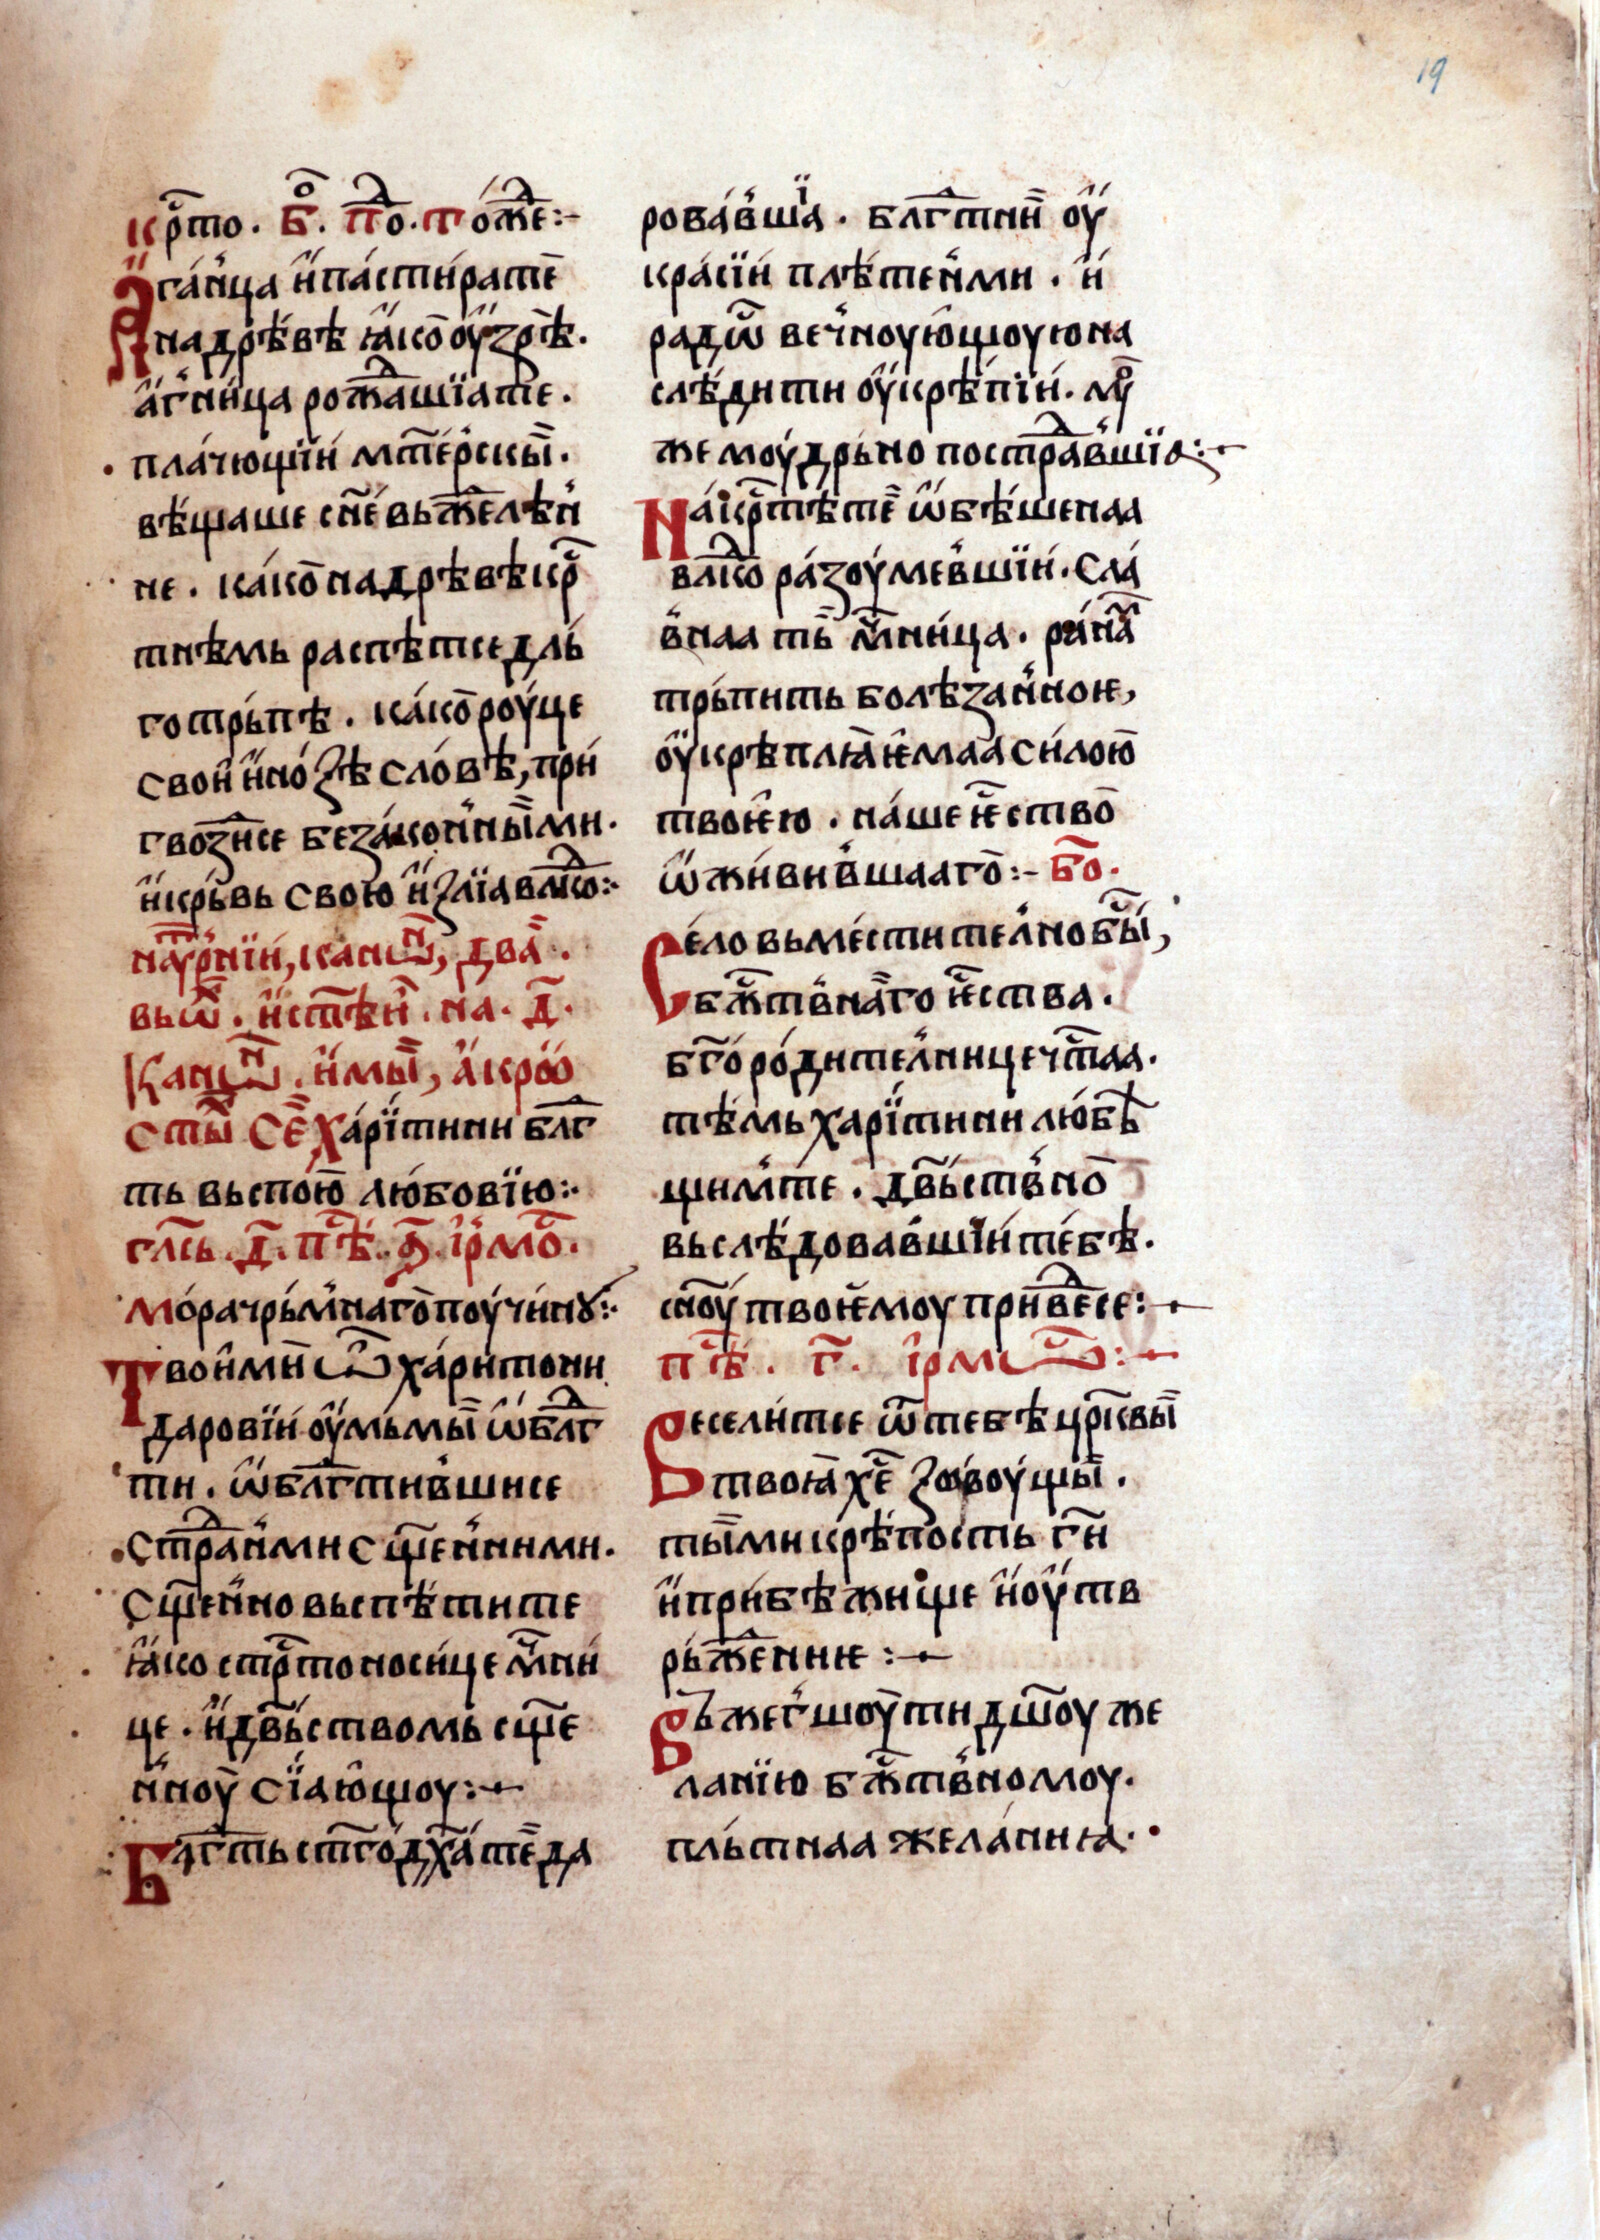 19
крⷭ҇то. бⷪ҇. пⷣо. то́жⷣе:-
А҆га́н꙽ца и҆ па́сти́ра те҆
на дрѣ́вѣ ꙗ҆́ко ѹ҆зрѣ̀.
а҆́г꙽ни́ца рожⷣа́шїа те.
пла́чющїи мт҃е́рскы̏.
вѣ́щаше сн҃е вьжⷣелѣн꙽
не. ка́ко на дрѣ́вѣ крⷭ҇
тнѣмь распѣ́т се дль́
го трь́пѣ. ка́ко рѹ́це
свои҆ и҆ но́зѣ сло́вѣ, при́
гвозⷣи се беза́кон꙽ны̏ми.
и҆ крь́вь свою и҆злїа влⷣко:·
на ѹ҆́трⷩ҇їи, канѡⷩ҇, два̏.
вьѡ҆ⷯ. и҆ стⷯѣи҆. на. д҃.
Канѡⷩ҇. и҆мы̏, а҆́кро
сты̏ се҆ Ха́рїтини блг҃
ть вьспо́ю лю́бовїю:·
глⷭ҇ь. д҃. пⷭ҇ѣ. а҃. і҆рмⷭ҇о.
Мо́ра чрь́м꙽наго пѹ́чи́нꙋ:·
Твои҆ми ѿ ха́ритони
даровїи ѹ҆мь мы̏ ѡ҆блгⷣ
ти. ѡ҆блгⷣтив꙽ши се
стрⷣан꙽ми сщ҃ен꙽ними.
Сщ҃ен꙽но вьспѣ́ти те
ꙗ҆́ко стрⷭ҇тоноси́це мⷱ҇ни́
це. и҆ дв҃ьствомь сщ҃е
н꙽нѹ сїаю҆щѹ:-
Блгⷣть ст҃го дх҃а те҆ да
рова́в꙽шїа. блгⷣтни҆ ѹ҆
кра́сїи плѣ́тен꙽ми. и҆
радѡⷭ҇ веч꙽нѹю҆щѹю на
слѣ́дити ѹ҆крѣ́пїи. мѹⷤ
же мѹ́дрьно пострⷣа́в꙽шїа:-
На крⷭ҇тѣ те҆ ѡ҆бѣ́шенаа
влⷣко ра́зѹ́мев꙽шїи. Сла́
в꙽наа ты̏ мⷱ҇ни́ца. ра́наⷨ
трь́пить болѣзан꙽ноѥ,
ѹ҆крѣплꙗ҆ѥ҆маа си́лою
твоѥ҆ю. на́ше ѥⷭ҇ство
ѡ҆жи́вив꙽шааго:- бо҃.
Се́ло вьмести́тел꙽но бⷭ҇ы̏,
бжⷭ҇тв꙽на̏го ѥⷭ҇ства.
бг҃оро́дител꙽нице чⷭ҇таа.
тѣ́мь харїтини лю́бѣ
щим꙽ те. дв҃ьств꙽но
вьслѣ́довав꙽шїи те́бѣ.
сн҃ѹ твоѥ҆мѹ приве́дⷣе се:-
пⷭ҇ѣ. г҃. і҆рмѡⷭ҇:-
Весели́т се ѿ тебѣ црк҃вы̏
твоꙗ҆ хе҃ зовѹ́щы̏.
ты̏ ми крѣ́пость гн҃
и҆ при́бѣжище и҆ ѹ҆тв
рь́жⷣениѥ:-
Вьжег꙽шѹ ти дш҃ѹ же
ланїю бжⷭ҇тв꙽номѹ.
пль́тнаа жела́ниꙗ.